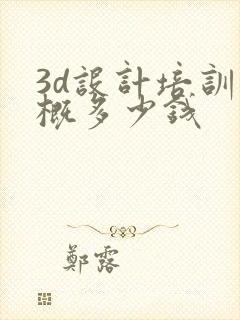 3d設計培訓
概多少錢
鄭露